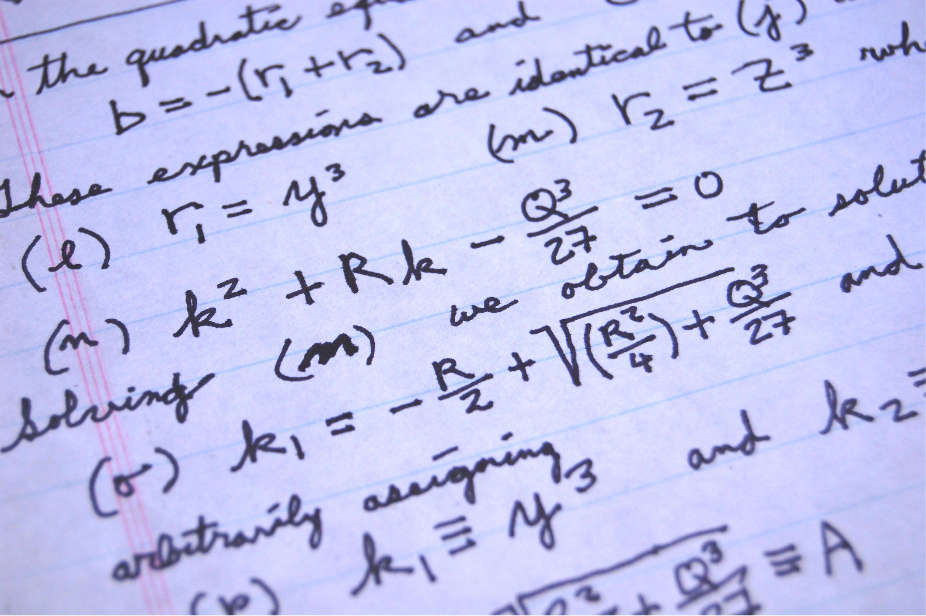 the quadratic
b = -(r₁ + r₂) and
These expressions are identical to (j)
(l) r₁ = y³ (m) r₂ = z³
(n) k² + Rk - Q³/27 = 0
Solving (m) we obtain to
(o) k₁ = - R/2 + √(R²/4) + Q³/27 and
arbitrarily assigning
(p) k₁ ≡ y³ and k₂ =
Q³ ≡ A